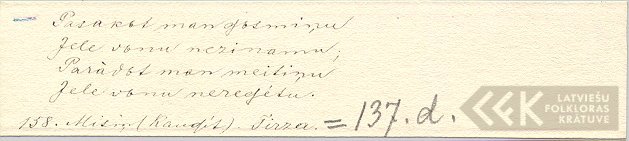 Pasakat man dosmiņu
Jele vonu nezinamu;
Parādat man meitiņu
Jele vonu neredzētu.
158. Misiņ (Kaudzīt). Tirza. = 137. d.
LFK
LATVIEŠU
FOLKLORAS
KRĀTUVE